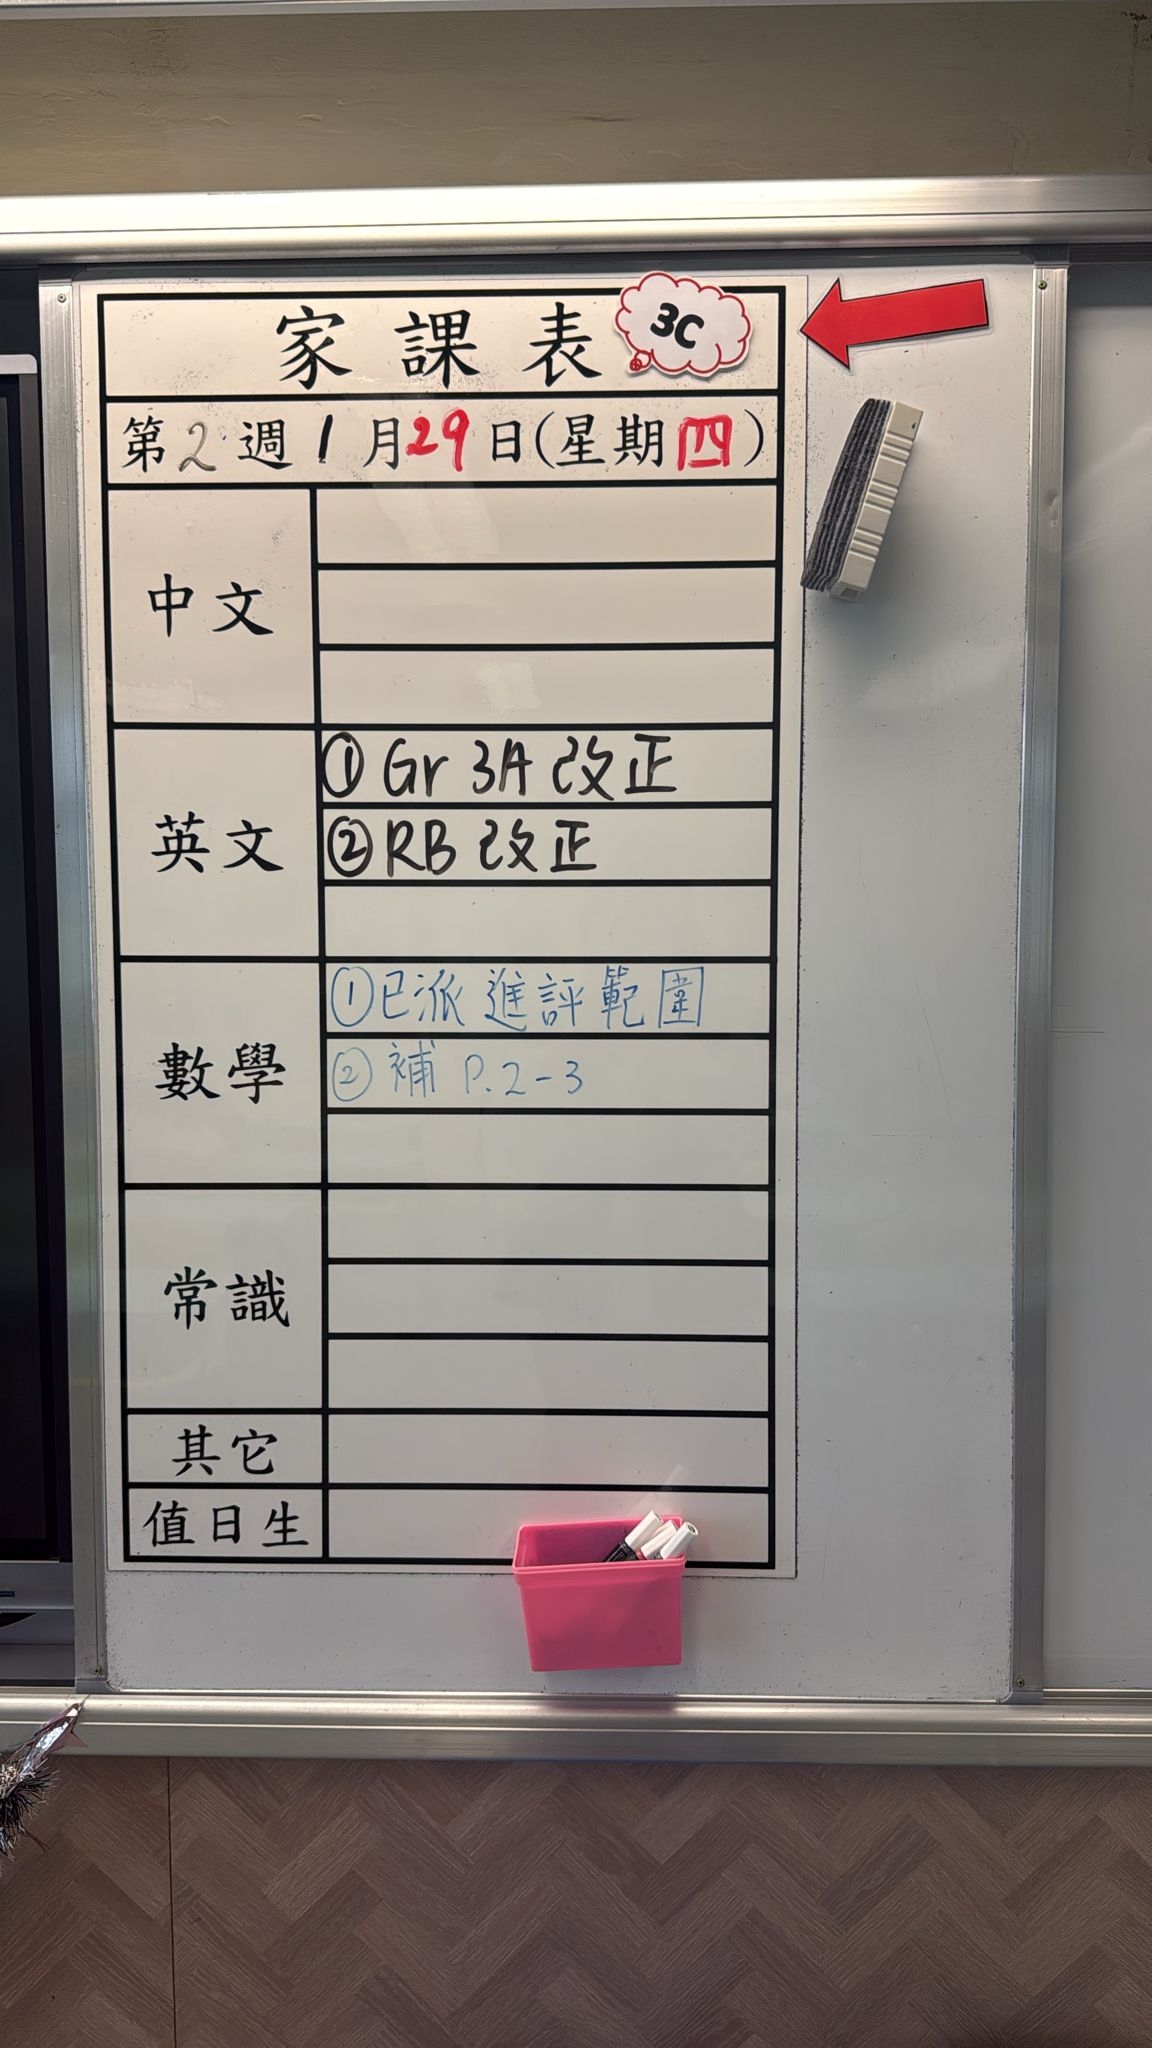 家課表 3C
第2週1月29日(星期四)
中文
英文
①Gr 3A 改正
②RB 改正
數學
①已派進評範圍
②補 P.2-3
常識
其它
值日生